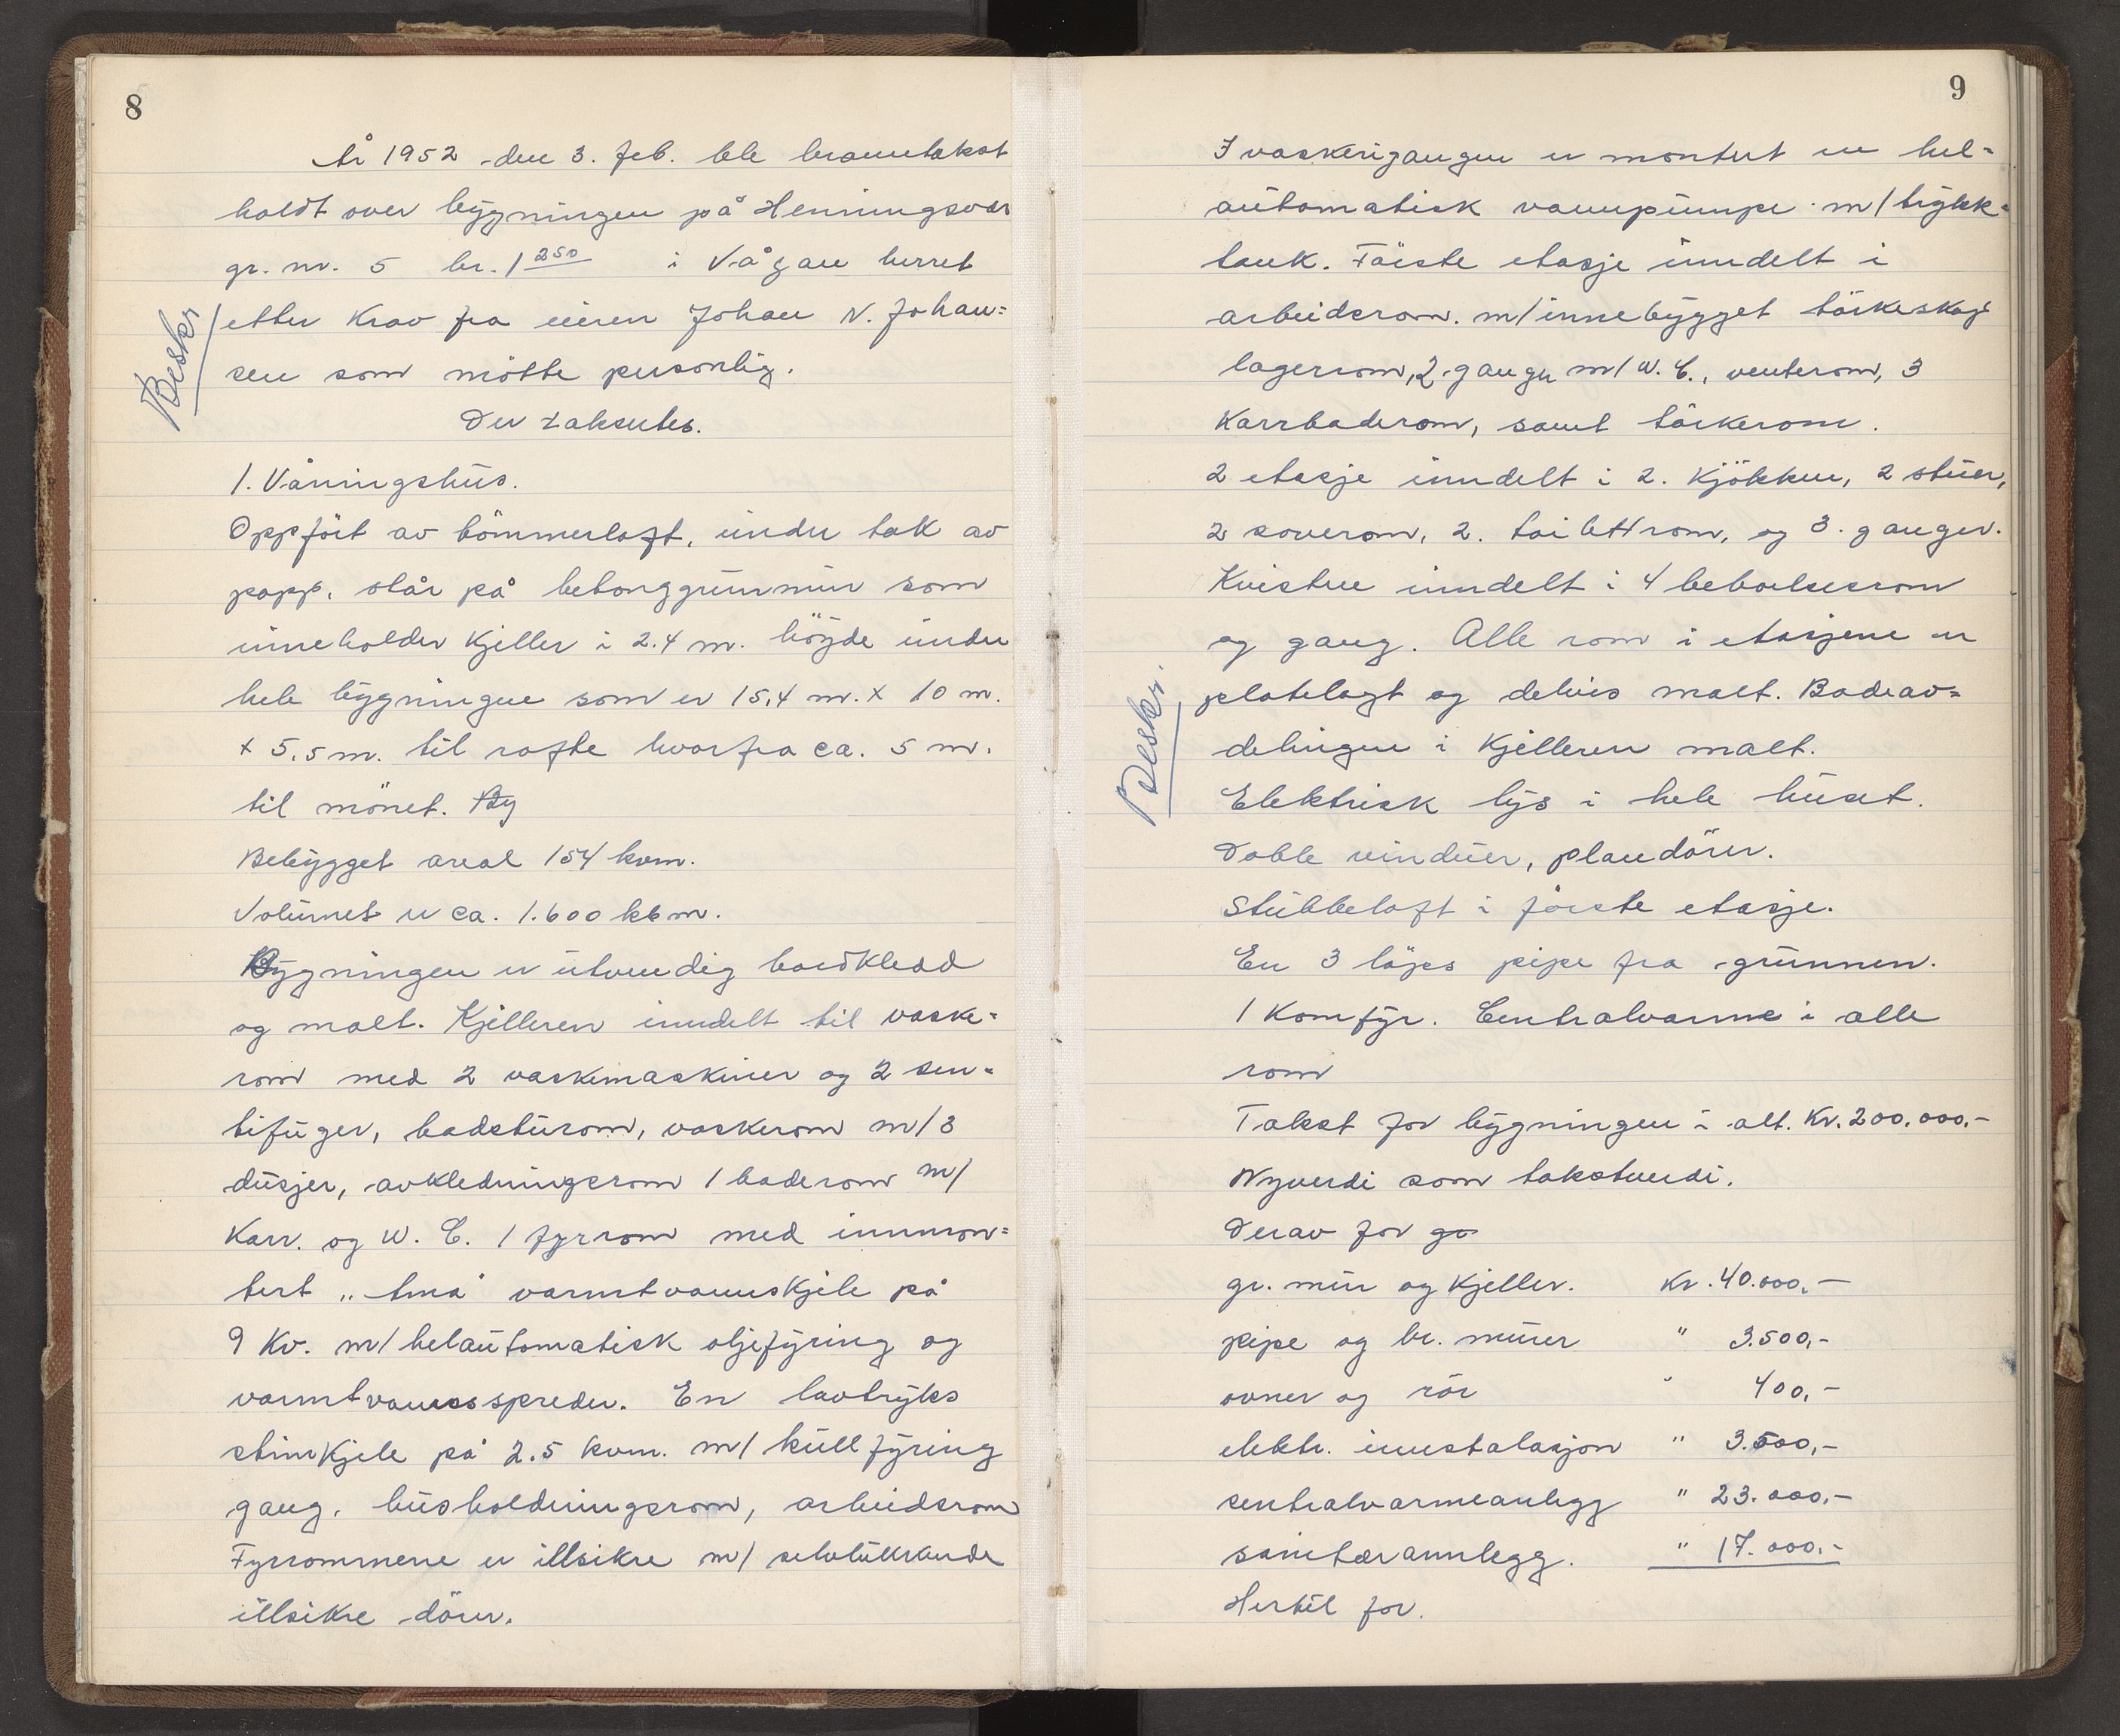 8
År 1952 den 3. feb. ble branntakst
holdt over bygningen på Henningsvær
gr. nr. 5 br. 1 250 i Vågan herret
Beskr
etter Krav fra eieren Johan N. Johan=
sen som møtte personlig.
Der taksertes.
1. Våningshus.
Oppført av tömmerlaft, under tak av
papp, står på betonggrunnmur som
inneholder Kjeller i 2.4 m. höyde under
hele bygningen som er 15,4 m. x 10 m.
x 5,5 m. til rafte hvorfra ca. 5 m.
til mönet. By
Bebygget areal 154 kvm.
Volumet er ca. 1.600 kbm.
Bygningen er utvendig bordkledd
og malt. Kjelleren inndelt til vaske=
rom med 2 vaskemaskiner og 2 sen=
tifuger, badsturom, vaskerom m/3
dusjer, avkledningsrom 1 baderom m/
Karr. og W. C. 1 fyrrom med innmon=
tert „tma" varmtvannskjele på
9 Kv. m/ helautomatisk oljefyring og
varmtvannsspreder. En lavtryks
stimkjele på 2.5 kvm. m/ kullfyring
gang. husholdningsrom, arbeidsrom
Fyrrommene er illsikre m/ selvlukkende
illsikre dörer.
9
I vaskerigangen er montert en hel=
automatisk vannpumpe m/ trykk=
tank. Förste etasje inndelt i
arbeidsrom. m/ innebygget törkeskap
lagerrom, 2 ganger m/ W. C., venterom, 3
Karrbaderom, samt törkerom.
2 etasje inndelt i 2. Kjökken, 2 stuer,
2 soverom, 2. toilettrom, og 3. ganger.
Kvisten inndelt i 4 beboelsesrom
og gang. Alle rom i etasjene er
Beskr.
platelagt og delvis malt. Badeav=
delingen i Kjelleren malt.
Elektrisk lys i hele huset.
Doble vinduer, plandörer.
Stubbeloft i förste etasje.
En 3 löps pipe fra grunnen.
1 Komfyr. Centralvarme i alle
rom
Takst for bygningen i alt. Kr. 200.000,-
Nyverdi som takstverdi.
Derav for gr
gr. mur og Kjeller. Kr. 40.000,-
pipe og br. murer " 3.500,-
ovner og rör " 400,-
elektr. innstalasjon " 3.500,-
sentralvarmeanlegg " 23.000,-
sanitæranlegg. " 17.000,-
Hertil for.